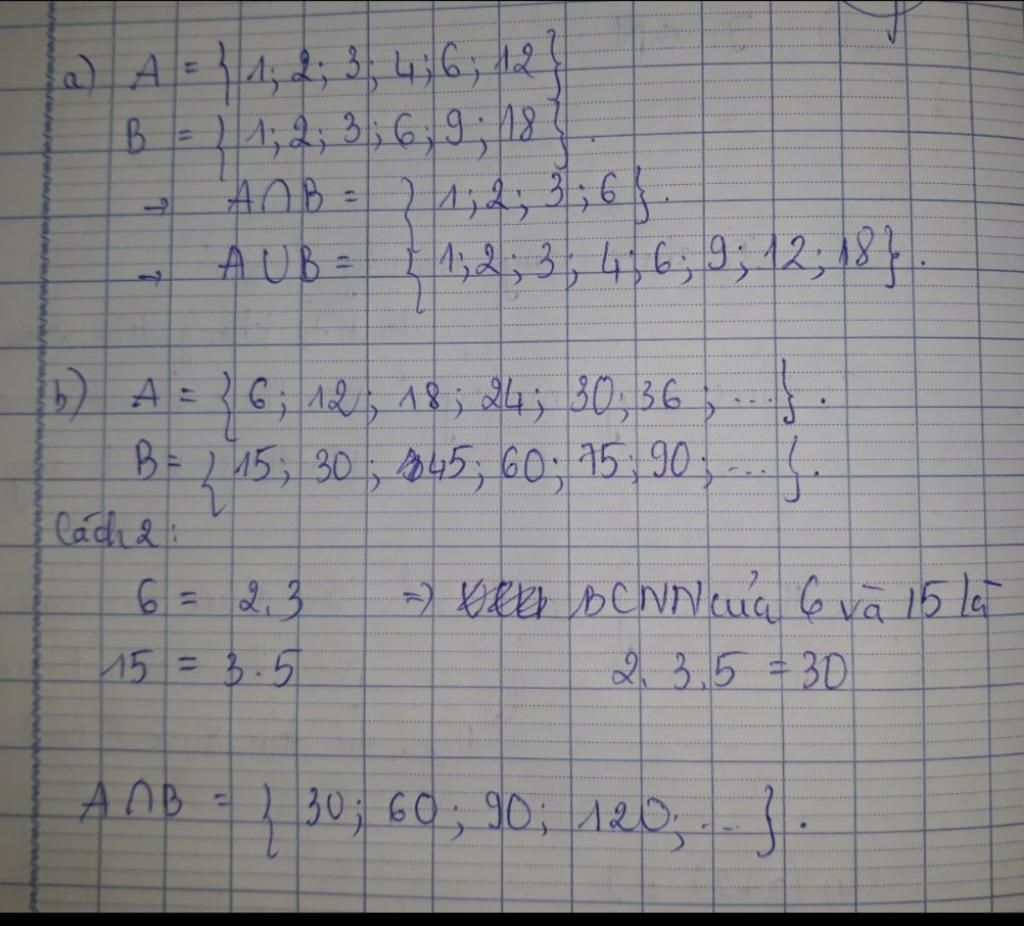 a) A = { 1; 2; 3; 4; 6; 12 }
B = { 1; 2; 3; 6; 9; 18 } .
→ A∩B = } 1; 2; 3; 6 } .
→ A∪B = { 1; 2; 3; 4; 6; 9; 12; 18 } .
b) A = { 6; 12; 18; 24; 30; 36; ... } .
B = { 15; 30; 45; 60; 75; 90; ... { .
Cách 2:
6 = 2.3 ⇒ BCNN của 6 và 15 là
15 = 3.5 2.3.5 = 30
A∩B = { 30; 60; 90; 120; ... } .